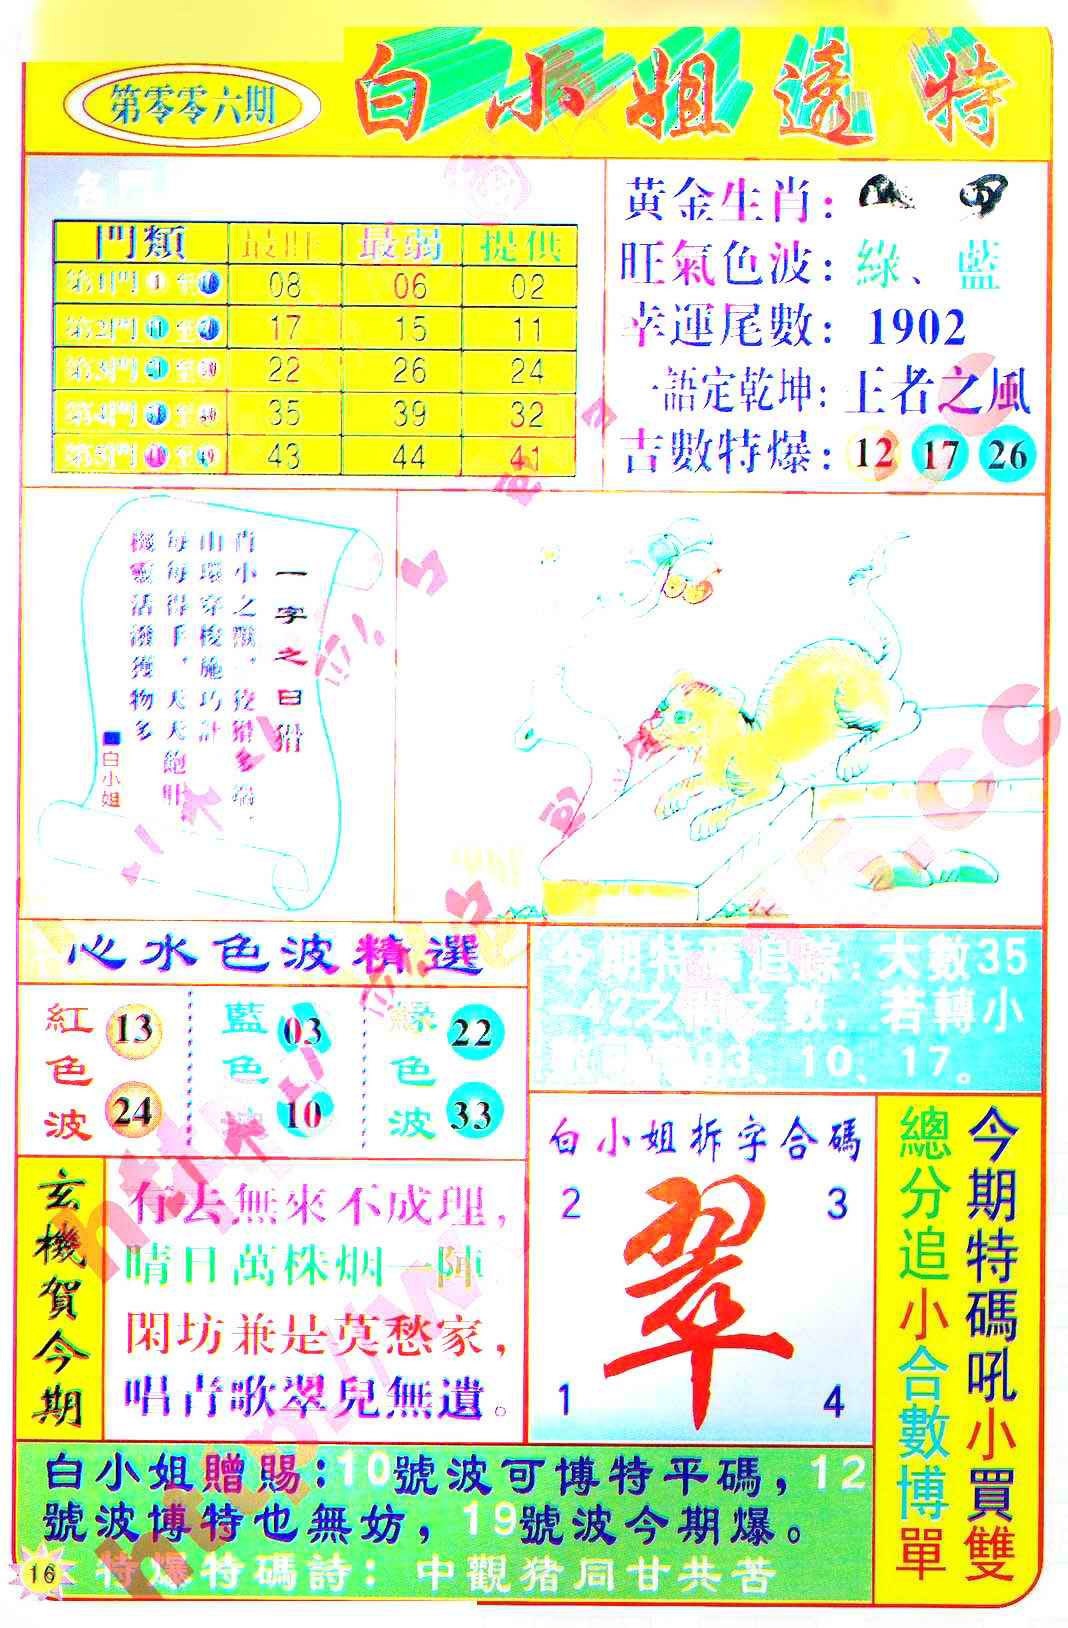 白小姐透特
第零零六期
門類 最旺 最弱 提供
第1門 1 至 08 06 02
第2門 11 至 17 15 11
第3門 21 至 22 26 24
第4門 至 35 39 32
第5門 至 49 43 44 41
黃金生肖：
旺氣色波：綠、藍
幸運尾數：1902
一語定乾坤：王者之風
吉數特爆：12 17 26
一字之曰
肖小之獸，
山環穿梭施巧計
每每得手，天天飽肚
機靈活潑獲物多
白小姐
心水色波精選
紅色波 13 24
藍色波 03 10
綠色波 22 33
今期特碼追踪：大數35
-42之間之數，若轉小
03、10、17。
玄機賀今期
有去無來不成理，
晴日萬株烟一陣
閑坊兼是莫愁家，
唱青歌翠兒無遺。
白小姐拆字合碼
2 3
翠
1 4
今期特碼吼小買雙
總分追小合數博單
白小姐贈賜：10號波可博特平碼，12
號波博特也無妨，19號波今期爆。
特爆特碼詩：中觀猪同甘共苦
16